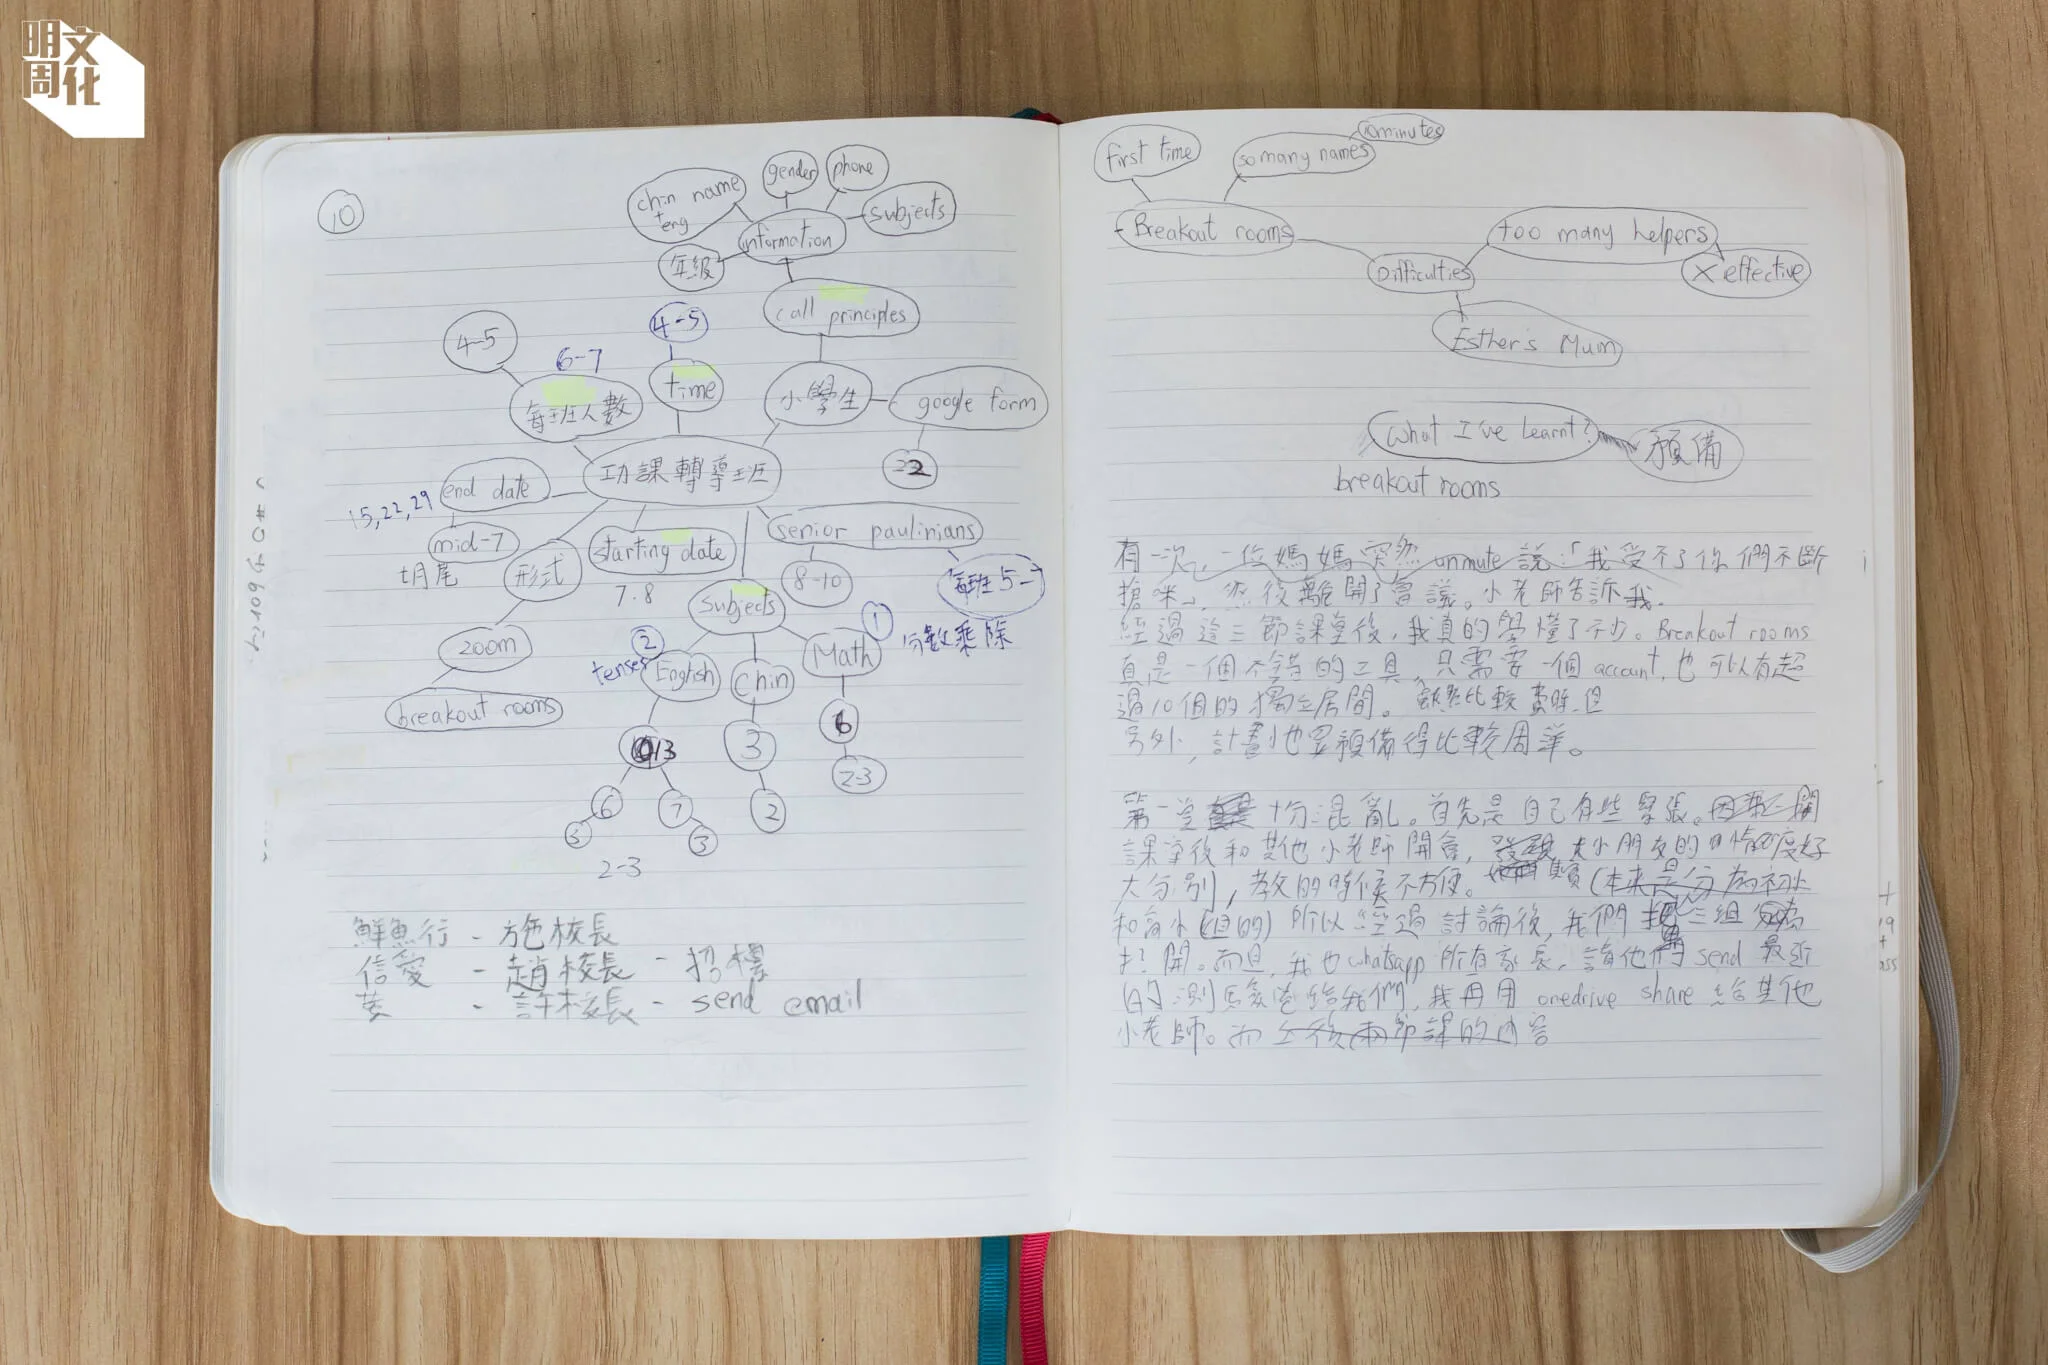 明周文化
10
chin name
+eng
gender
phone
subjects
information
年級
call principles
4-5
6-7
每班人數
4-5
time
小學生
google form
22
功課轉導班
end date
15,22,29
mid-7
七月尾
形式
zoom
breakout rooms
starting date
7.8
senior paulinians
8-10
每班5-7
subjects
② tenses
English
Chin
Math
①
分數乘除
13
6
5
7
3
2-3
3
2
6
2-3
鮮魚行 - 施校長
信愛 - 趙校長 - 招樓
黃 - 許校長 - send email
first time
so many names
10 minutes
Breakout rooms
Difficulties
too many helpers
X effective
Esther's Mum
What I've learnt?
預備
breakout rooms
有一次,一位媽媽突然unmute說:「我受不了你們不斷
搶咪」,然後離開了會議。小老師告訴我.
經過這三節課堂後,我真的學懂了不少。Breakout rooms
真是一個不錯的工具,只需要一個account,也可以有超
過10個的獨立房間。雖然比較費時,但
另外,計劃也要預備得比較周詳。
第一堂十分混亂。首先是自己有些緊張。
課堂後和其他小老師開會,發現大小朋友的程度好
大分別,教的時候不方便。(本來是分為初小
和高小組的)所以經過討論後,我們三組
打開。而且,我也whatsapp所有家長,請他們send最近
的測驗卷給我們,我再用onedrive share給其他
小老師。而上後兩節課的內容